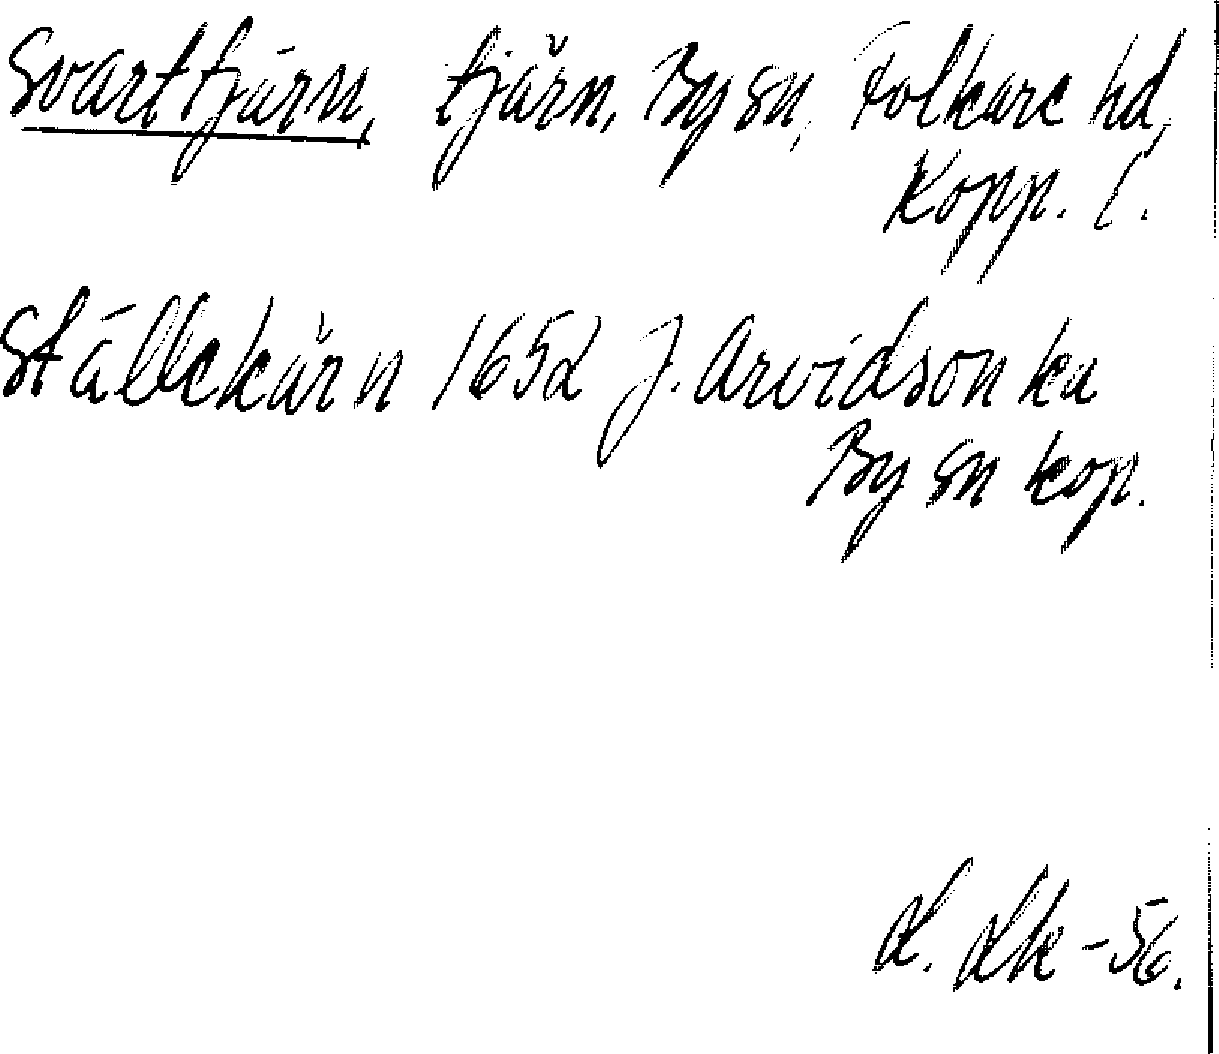 Svarttjärn, tjärn, By sn, Folkare hd,
Kopp. l.
Ställekärn 1652 J. Arvidson ka
By sn kop.
-56.